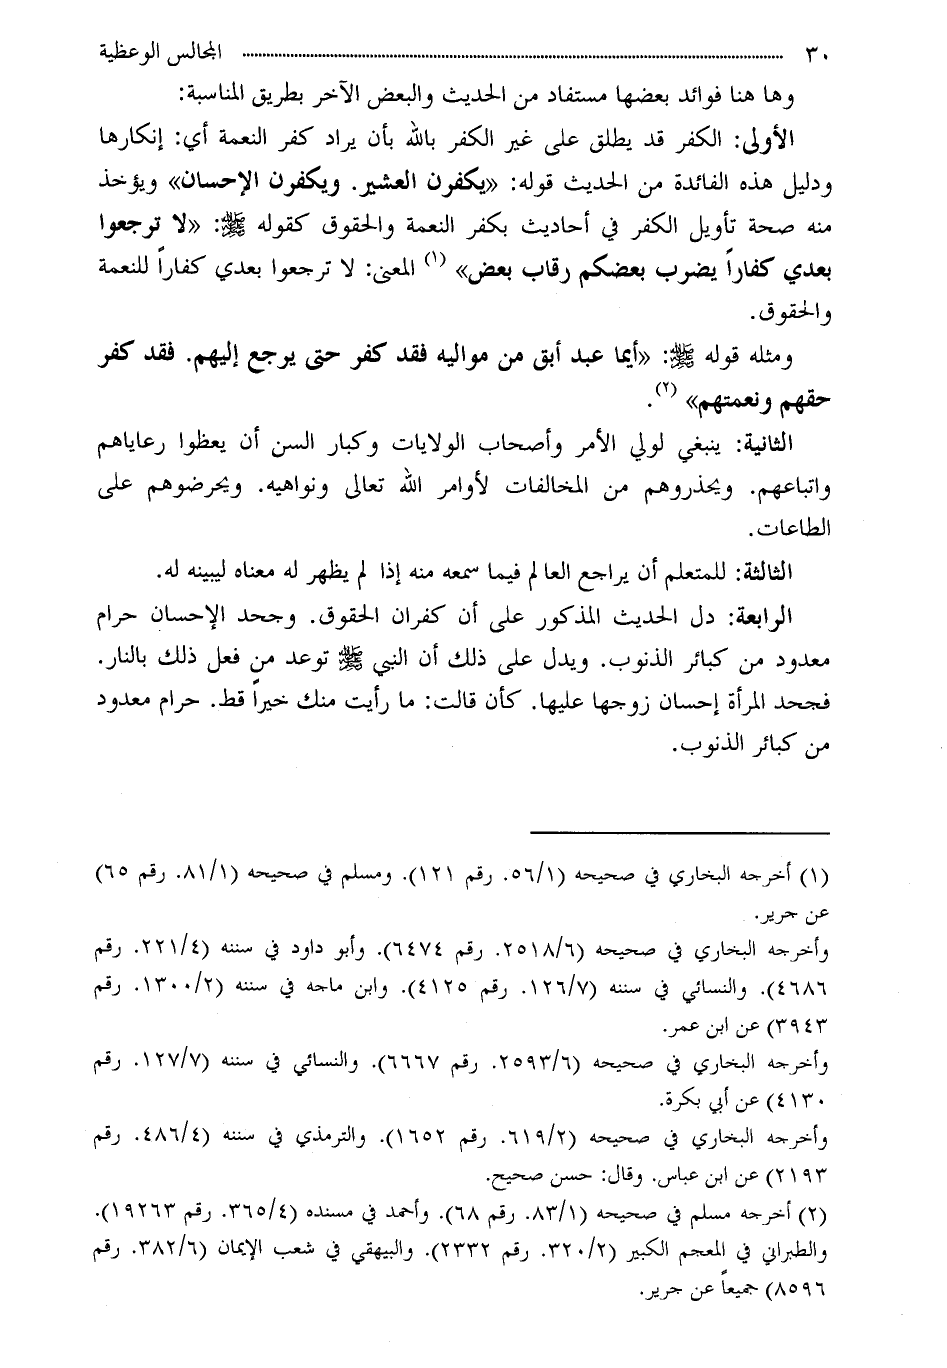 ٣٠ ........................................ المجالس الوعظية
وها هنا فوائد بعضها مستفاد من الحديث والبعض الآخر بطريق المناسبة:
الأولى: الكفر قد يطلق على غير الكفر بالله بأن يراد كفر النعمة أي: إنكارها
ودليل هذه الفائدة من الحديث قوله: «يكفرن العشير. ويكفرن الإحسان» ويؤخذ
منه صحة تأويل الكفر في أحاديث بكفر النعمة والحقوق كقوله ﷺ: «لا ترجعوا
بعدي كفاراً يضرب بعضكم رقاب بعض» (١) المعنى: لا ترجعوا بعدي كفاراً للنعمة
والحقوق.
ومثله قوله ﷺ: «أيما عبد أبق من مواليه فقد كفر حتى يرجع إليهم. فقد كفر
حقهم ونعمتهم» (٢).
الثانية: ينبغي لولي الأمر وأصحاب الولايات وكبار السن أن يعظوا رعاياهم
واتباعهم. ويحذروهم من المخالفات لأوامر الله تعالى ونواهيه. ويحرضوهم على
الطاعات.
الثالثة: للمتعلم أن يراجع العالم فيما سمعه منه إذا لم يظهر له معناه ليبينه له.
الرابعة: دل الحديث المذكور على أن كفران الحقوق. وجحد الإحسان حرام
معدود من كبائر الذنوب. ويدل على ذلك أن النبي ﷺ توعد من فعل ذلك بالنار.
فجحد المرأة إحسان زوجها عليها. كأن قالت: ما رأيت منك خيراً قط. حرام معدود
من كبائر الذنوب.
(١) أخرجه البخاري في صحيحه (٥٦/١. رقم ١٢١). ومسلم في صحيحه (٨١/١. رقم ٦٥)
عن جرير.
وأخرجه البخاري في صحيحه (٢٥١٨/٦. رقم ٦٤٧٤). وأبو داود في سننه (٢٢١/٤. رقم
٤٦٨٦). والنسائي في سننه (١٢٦/٧. رقم ٤١٢٥). وابن ماجه في سننه (١٣٠٠/٢. رقم
٣٩٤٣) عن ابن عمر.
وأخرجه البخاري في صحيحه (٢٥٩٣/٦. رقم ٦٦٦٧). والنسائي في سننه (١٢٧/٧. رقم
٤١٣٠) عن أبي بكرة.
وأخرجه البخاري في صحيحه (٦١٩/٢. رقم ١٦٥٢). والترمذي في سننه (٤٨٦/٤. رقم
٢١٩٣) عن ابن عباس. وقال: حسن صحيح.
(٢) أخرجه مسلم في صحيحه (٨٣/١. رقم ٦٨). وأحمد في مسنده (٣٦٥/٤. رقم ١٩٢٦٣).
والطبراني في المعجم الكبير (٣٢٠/٢. رقم ٢٣٣٢). والبيهقي في شعب الإيمان (٣٨٢/٦. رقم
٨٥٩٦) جميعاً عن جرير.